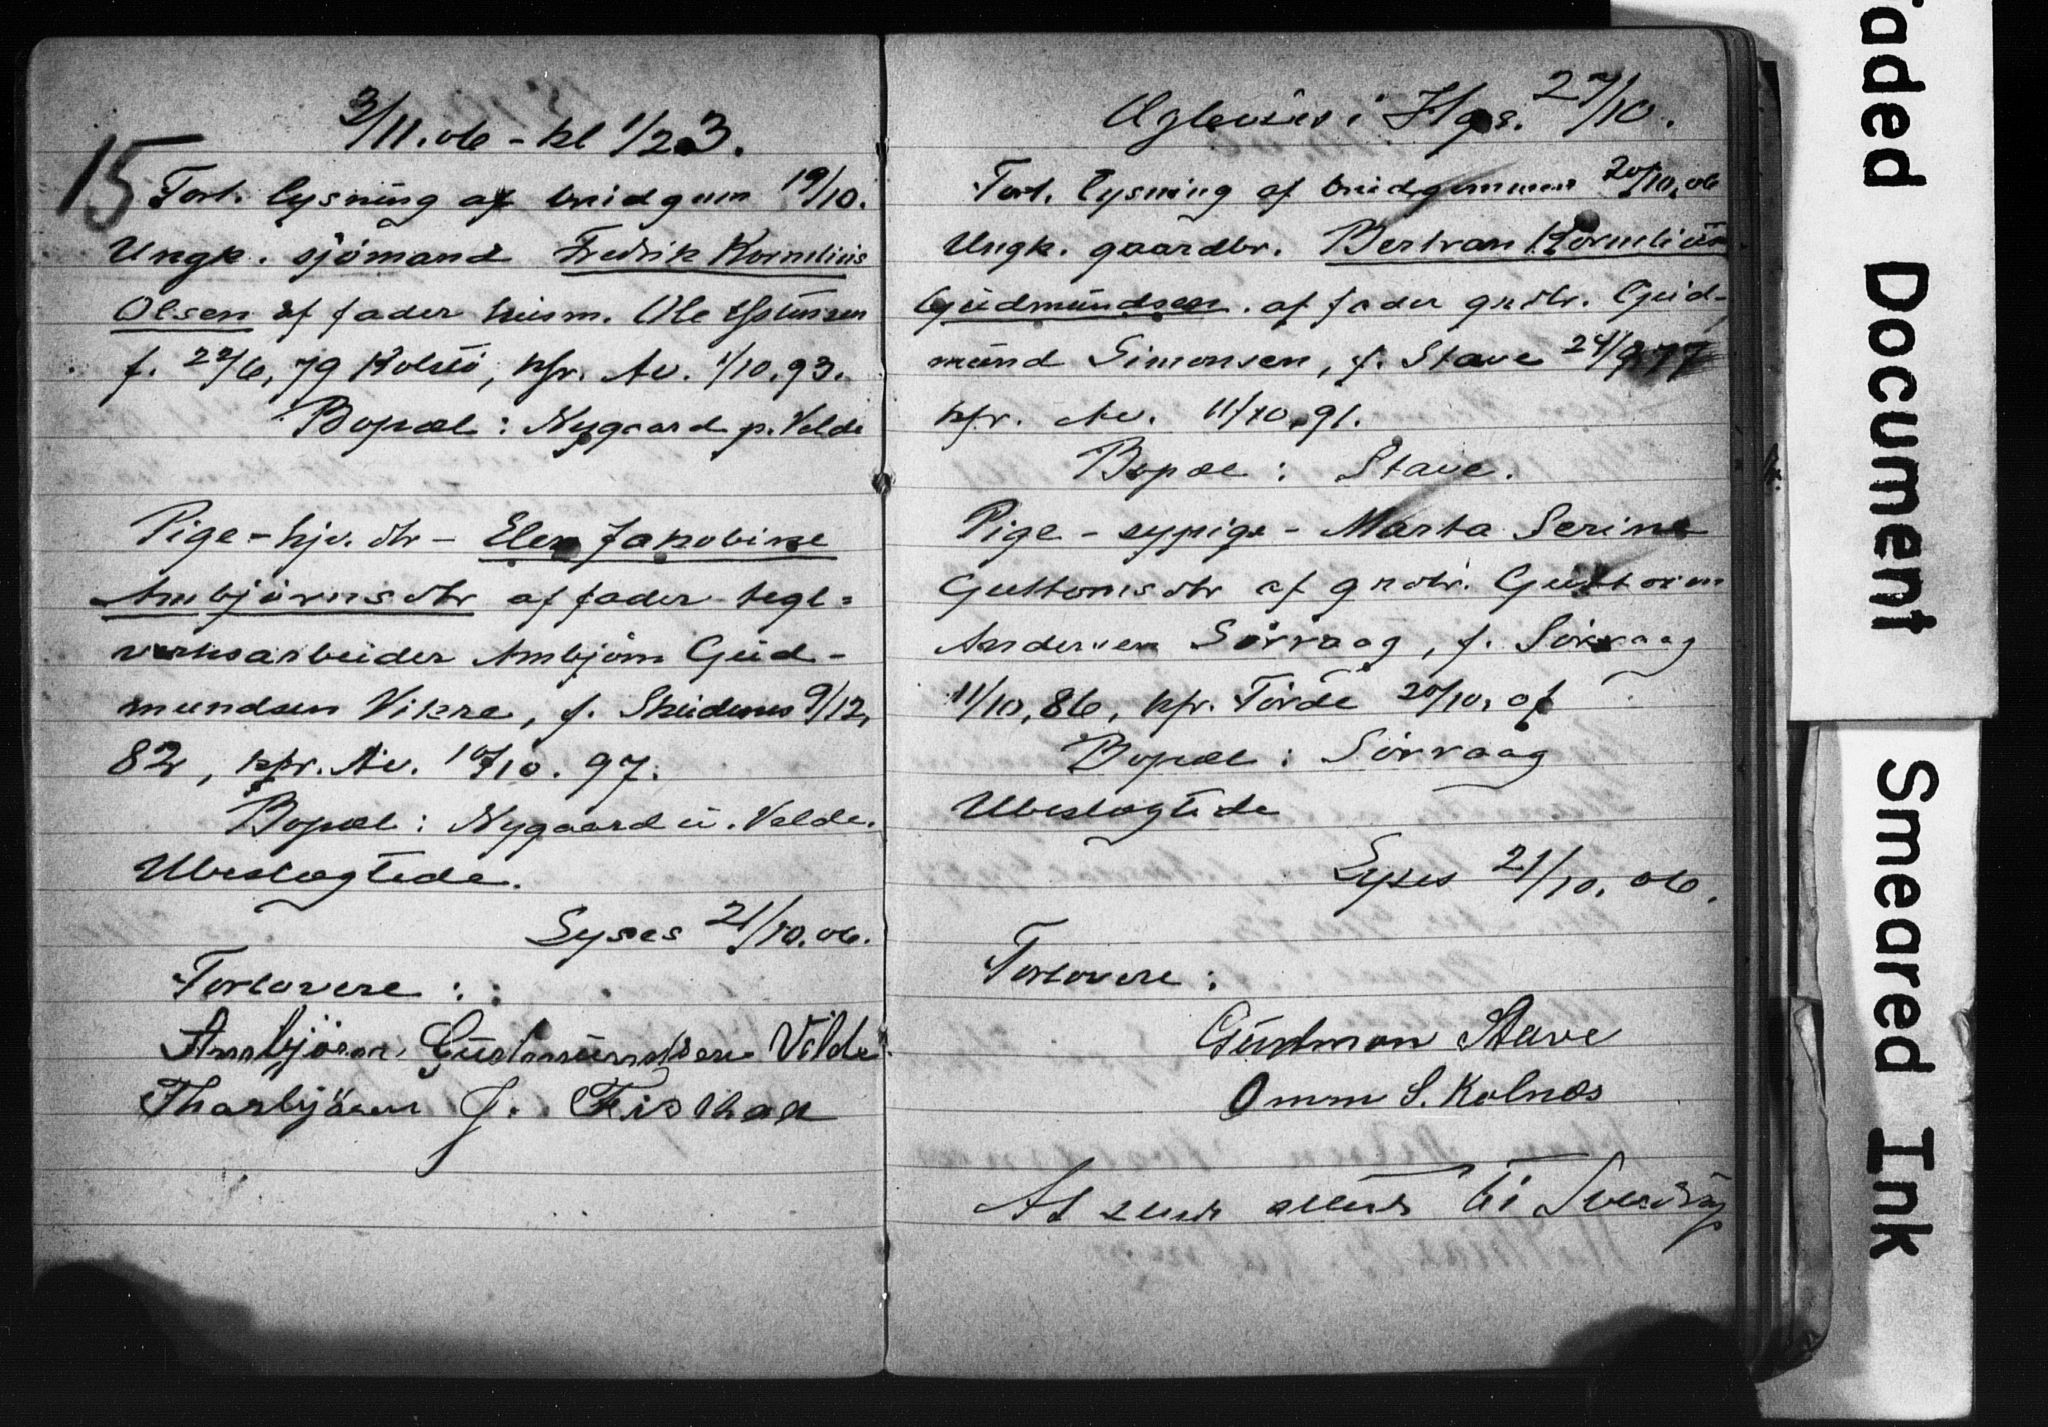 3/11.06 - kl 1/2 3.
15 Forl. lysning af bridgom 19/10.
Ungk. sjömand Fredrik Kornelius
Olsen af fader husm. Ole
f. 22/6, 79 Kolstö, kfr. Av. 1/10.93.
Bopæl: Nygaard p. Velde
Pige - hjv. dtr - Elen Jakobine
Ambjørnsdtr af fader tegl=
verksarbeider Ambjørn Gud-
mundsen Vikre, f. Skudenes 9/12,
82, kfr. Av. 10/10. 97.
Bopæl: Nygaard u. Velde.
Ubeslægtede.
Lyses 21/10.06.
Forlovere:
Ambjörn Gudmundsen Velde
Thorbjörn J. Fiskaa
Aglevises i Hgs. 27/10.
Forl. lysning af bridgommen 20/10.06
Ungk. gaardbr. Bertran Kornelius
Gudmundsen. af fader grdbr. Gud-
mund Simonsen, f. Stave 24/9.77
kfr. Av. 11/10.91.
Bopæl: Stave.
Pige - sypige - Marta Serine
Guttomsdtr af grdbr. Guttorm
Andersen Sørvaag, f. Sørvaag
11/10, 86, kfr. Førde 20/10. 01
Bopæl: Sørvaag
Ubeslægtede
Lyses 21/10.06.
Forlovere:
Gudmon Stave
Omm S. Kolnes
At sende attest til Sverdrup